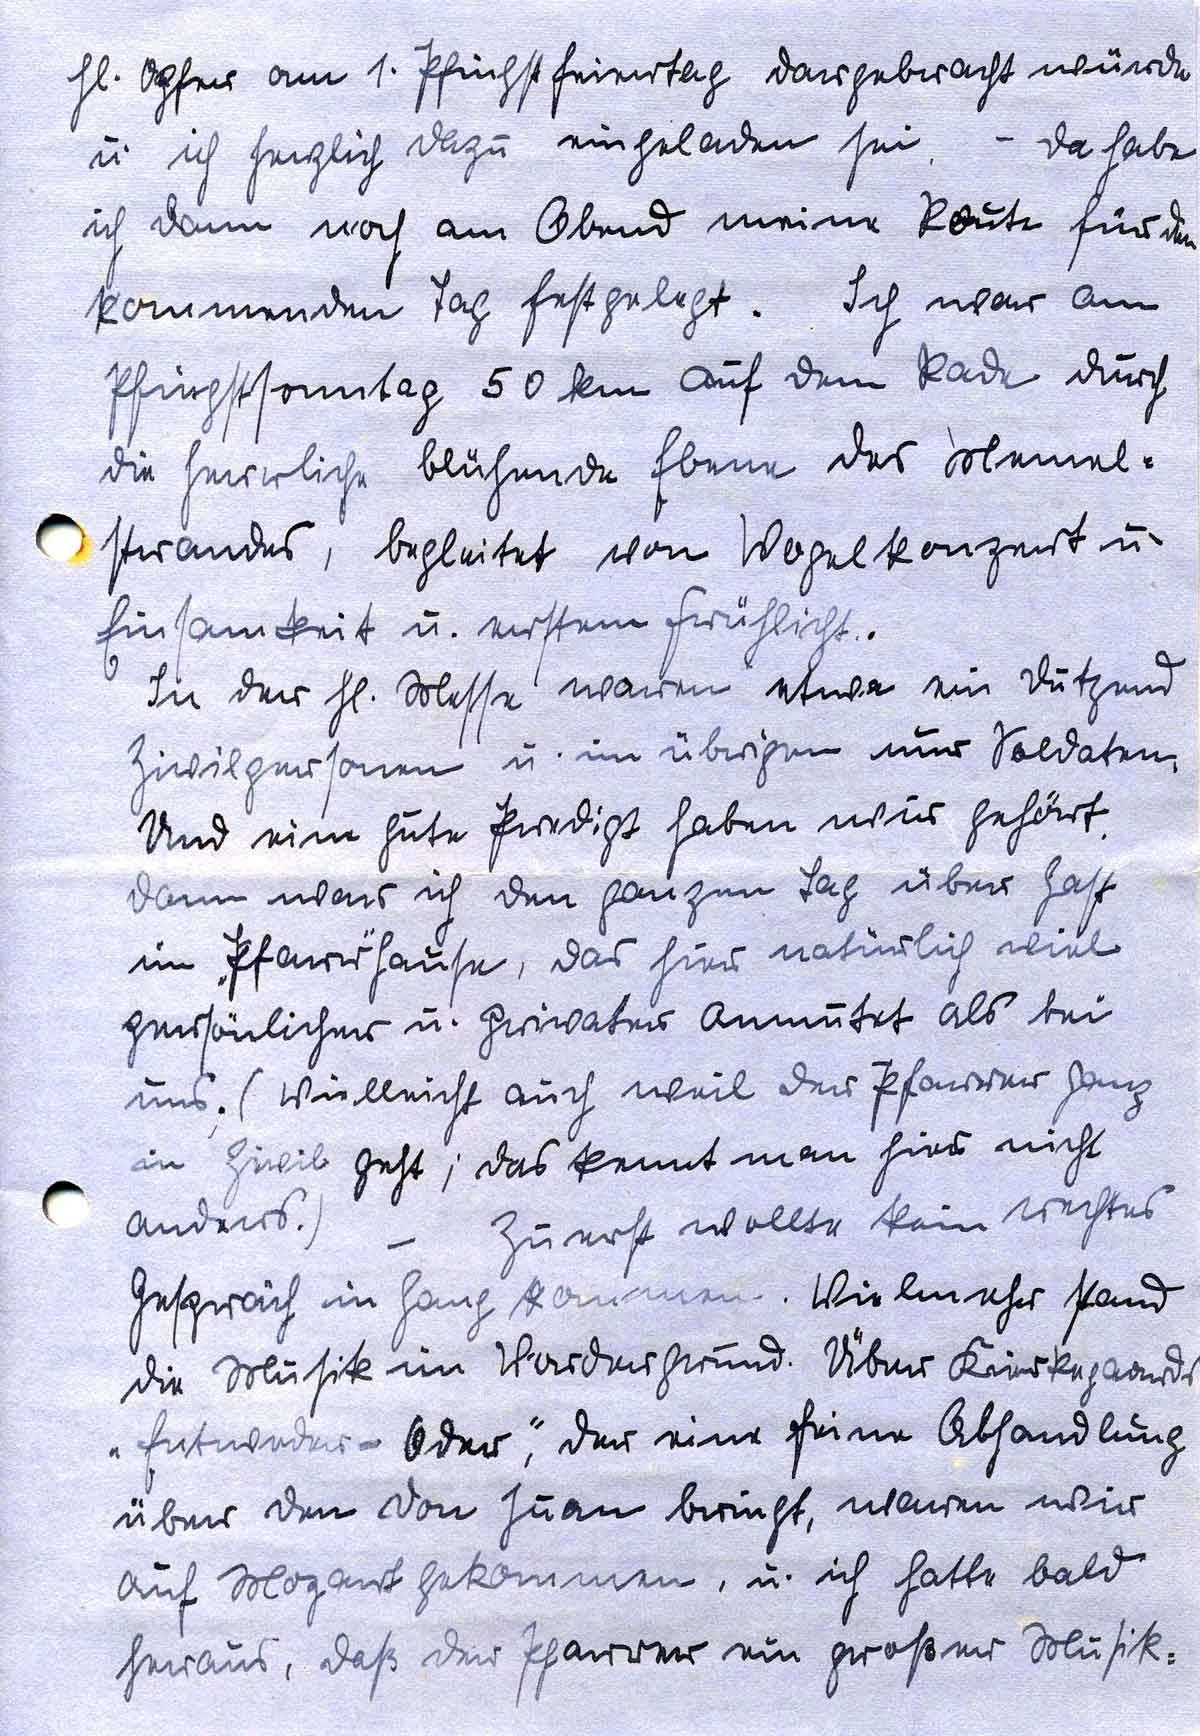 hl. Opfer am 1. Pfingstfeiertag dargebracht würde
u. ich herzlich dazu eingeladen sei. – da habe
ich dann noch am Abend meine Route für den
kommenden Tag festgelegt. Ich war am
Pfingstsonntag 50 km auf dem Rade durch
die herrliche blühende Ebene des Memel-
strandes, begleitet von Vogelkonzert u.
Einsamkeit u. erstem Frühlicht..
In der hl. Messe waren etwa ein Dutzend
Zivilpersonen u. im übrigen nur Soldaten.
Und eine gute Predigt haben wir gehört.
Dann war ich den ganzen Tag über Gast
im „Pfarr"hause, das hier natürlich viel
persönlicher u. privater anmutet als bei
uns. (Vielleicht auch weil der Pfarrer ganz
in Zivil geht; das kennt man hier nicht
anders.) – Zuerst wollte kein rechtes
Gespräch in Gang kommen. Vielmehr stand
die Musik im Vordergrund. Über Kierkegaards
„Entweder-Oder", der eine feine Abhandlung
über den Don Juan bringt, waren wir
auf Mozart gekommen, u. ich hatte bald
heraus, daß der Pfarrer ein großer Musik-